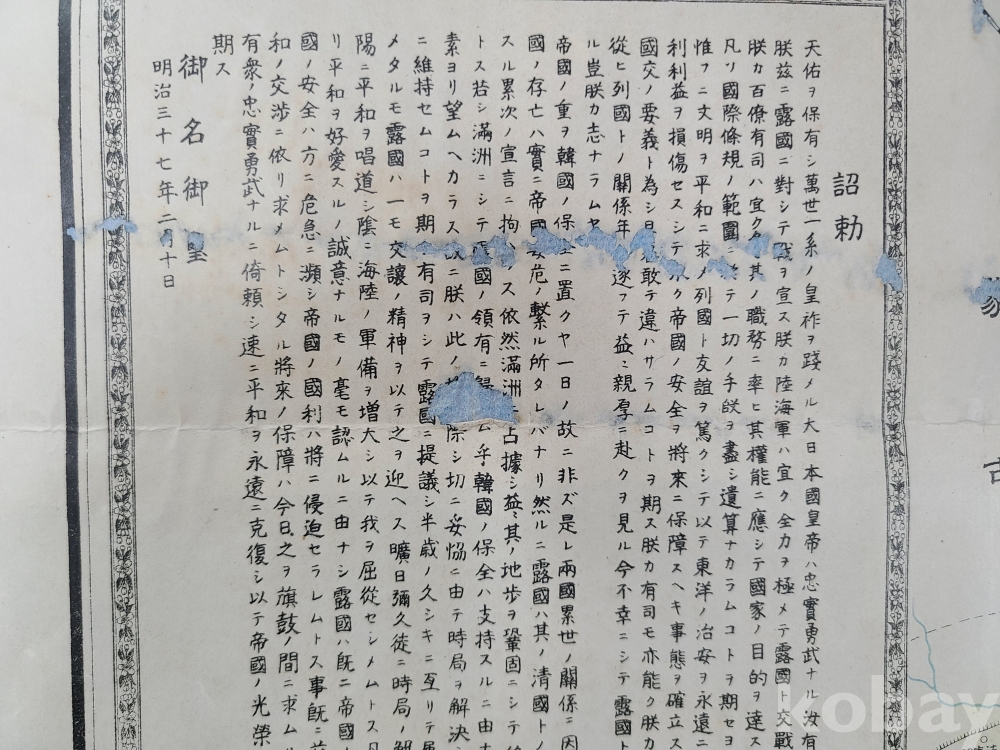 詔勅
天佑ヲ保有シ萬世一系ノ皇祚ヲ踐メル大日本國皇帝ハ忠實勇武ナル汝有
朕玆ニ露國ニ對シテ ヲ宣ス朕カ陸海軍ハ宜ク全力ヲ極メテ露國 交戰
朕カ百僚有司ハ宜ク 其ノ職務ニ率ヒ其權能ニ應シテ國家ノ目的ヲ達ス
凡ソ國際條規ノ範圍ニ テ一切ノ手段ヲ盡シ遺算ナカラムコトヲ期セヨ
惟フニ文明ヲ平和ニ求メ列國ト友誼ヲ篤クシテ以テ東洋ノ治安ヲ永遠ニ
利利益ヲ損傷セスシテ ク帝國ノ安全ヲ將來ニ保障スヘキ事態ヲ確立ス
國交ノ要義ト為シ 敢テ違ハサラムコトヲ期ス朕カ有司モ亦能ク朕カ
從ヒ列國トノ關係年 逐フテ益ミ親厚ニ赴クヲ見ル今不幸ニシテ露國ト
ル豈朕カ志ナラムヤ
帝國ノ重ヲ韓國ノ保全ニ置クヤ一日ノ故ニ非ズ是レ兩國累世ノ關係ニ因
國ノ存亡ハ實ニ帝國安危ノ繋ル所タレバナリ然ルニ露國ハ其ノ清國トノ
スル累次ノ宣言ニ拘ハ ス依然滿洲 占據シ益ミ其ノ地歩ヲ鞏固ニシテ
トス若シ滿洲ニシテ露國ノ領有ニ ム乎韓國ノ保全ハ支持スルニ由
素ヨリ望ムヘカラス ニ朕ハ此ノ 際シ切ニ妥恊ニ由テ時局ヲ解決
ニ維持セムコトヲ期 有司ヲシテ露國ニ提議シ半歳ノ久シキニ亙リテ
メタルモ露國ハ一モ交讓ノ精神ヲ以テ之ヲ迎ヘス曠日彌久徒ニ時局ノ
陽ニ平和ヲ唱道シ陰ニ海陸ノ軍備ヲ增大シ以テ我ヲ屈從セシメムトス
リ平和ヲ好愛スルノ誠意ナルモノ毫モ認ムルニ由ナシ露國ハ既ニ帝國
國ノ安全ハ方ニ危急ニ瀕シ帝國ノ國利ハ將ニ侵迫セラレムトス事既ニ
和ノ交渉ニ依リ求メムトシタル將來ノ保障ハ今日之ヲ旗鼓ノ間ニ求ム
有衆ノ忠實勇武ナルニ倚頼シ速ニ平和ヲ永遠ニ克復シ以テ帝國ノ光榮
期ス
御名御璽
明治三十七年二月十日
kobay